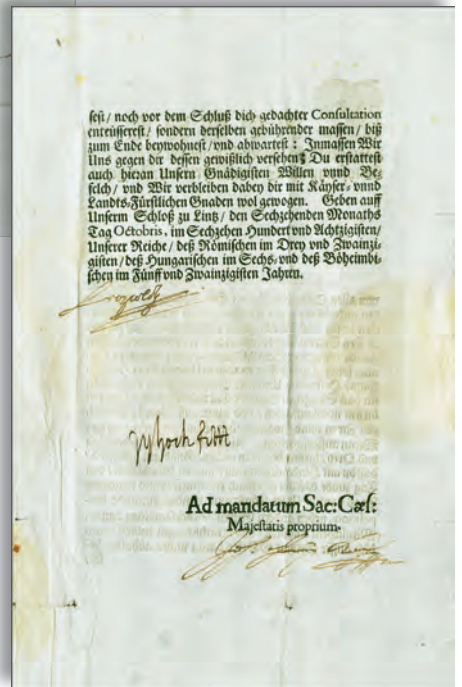 sest / noch vor dem Schluß dich gedachter Consultation
enteüsserest / sondern derselben gebührender massen / biß
zum Ende beywohnest / vnd abwartest : Inmassen Wir
Uns gegen dir dessen gewißlich versehen; Du erstattest
auch hieran Unsern Gnädigisten Willen vnnd Be-
felch / vnd Wir verbleiben dabey dir mit Käyser- vnnd
Landts-Fürstlichen Gnaden wol gewogen. Geben auff
Unserm Schloß zu Lintz / den Sechzehenden Monaths
Tag Octobris, im Sechzehen Hundert vnd Achtzigisten /
Unserer Reiche / deß Römischen im Drey vnd Zwainzi-
gisten / deß Hungarischen im Sechs- vnd deß Böheimbi-
schen im Fünff vnd Zwainzigisten Jahren.
Leopold
Ad mandatum Sac: Cæs:
Majestatis proprium.